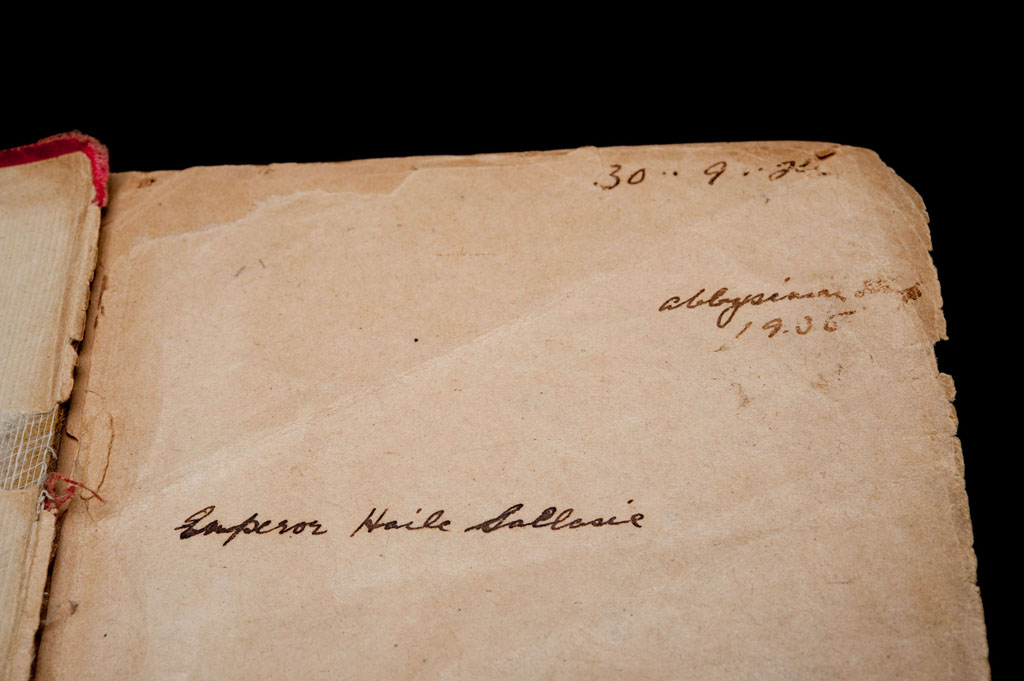 30 .. 9 ..
abbysinia
19.35
Emperor Haile Sallasie